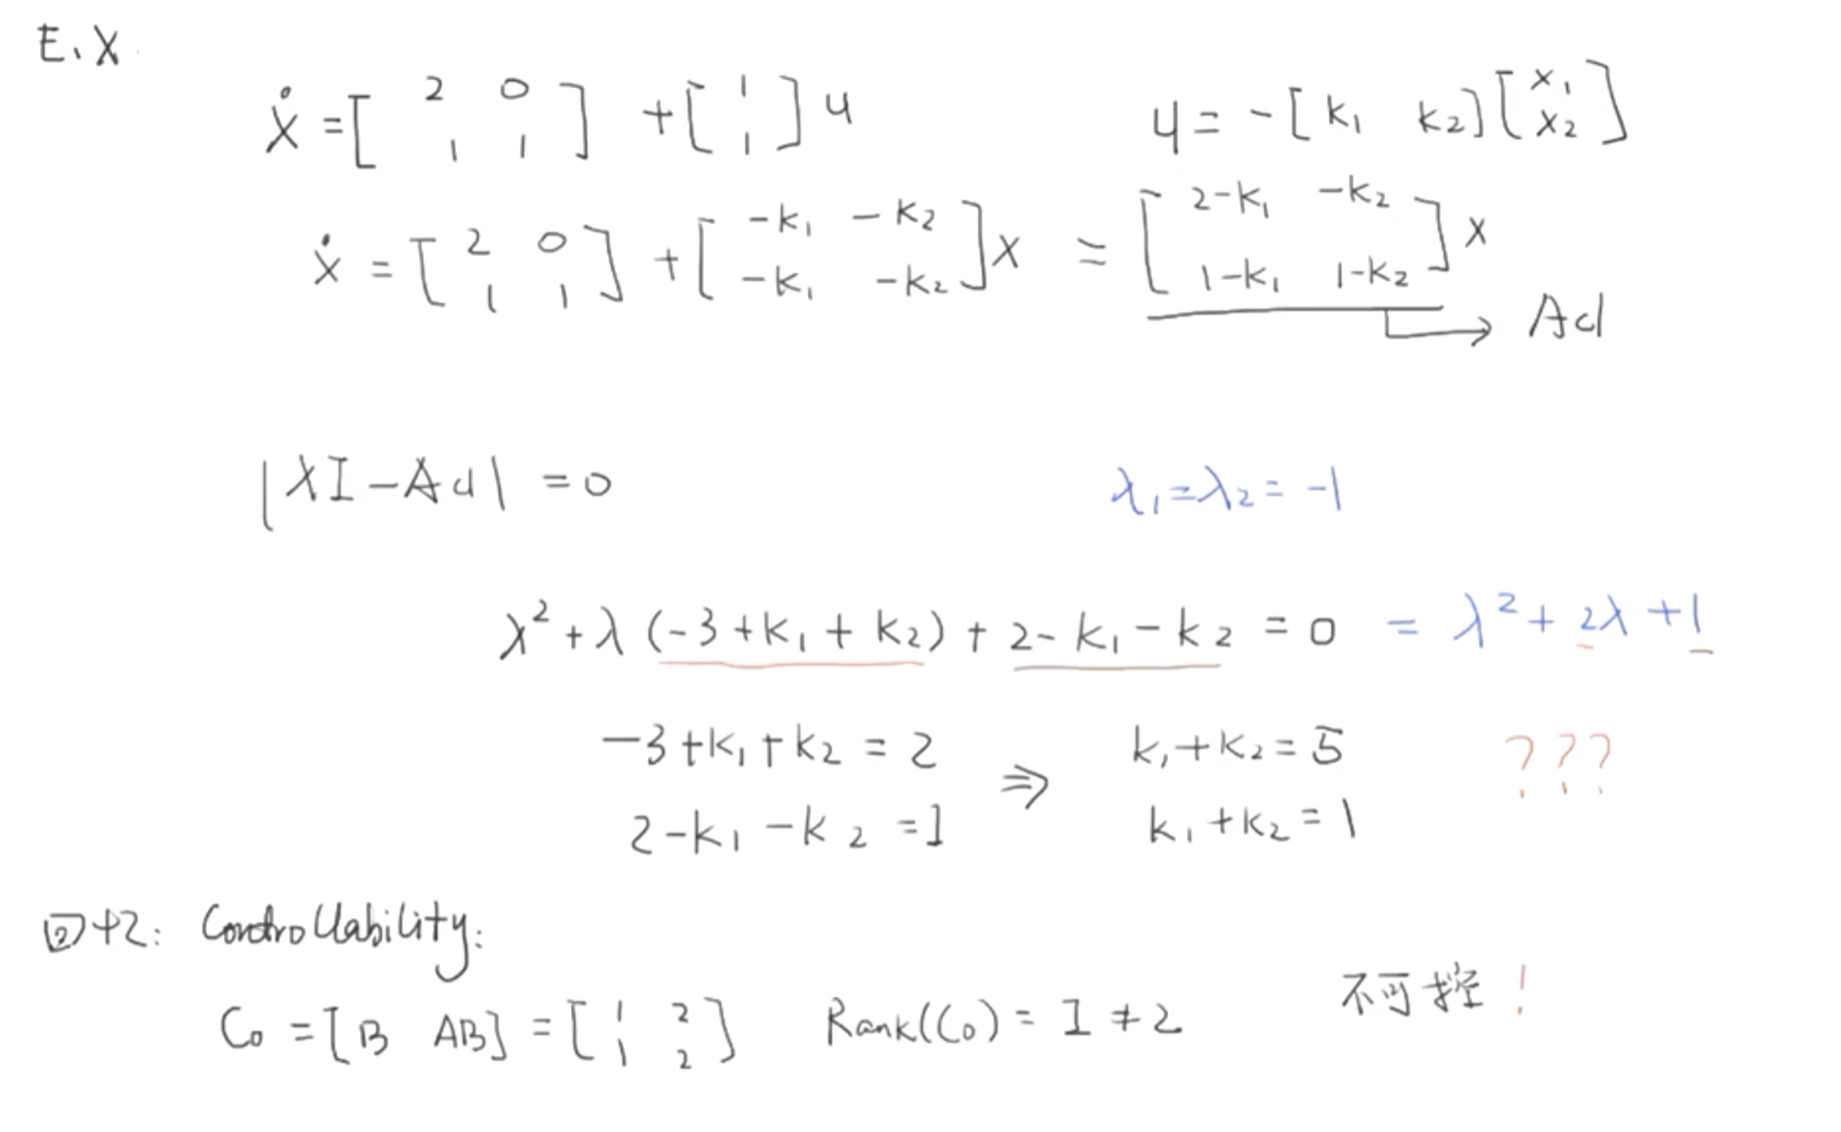 E.X.
ẋ = [2 0; 1 1] + [1; 1] u    u = -[k₁ k₂][x₁; x₂]
ẋ = [2 0; 1 1] + [-k₁ -k₂; -k₁ -k₂] x = [2-k₁ -k₂; 1-k₁ 1-k₂] x → Acl
|λI - Acl| = 0    λ₁ = λ₂ = -1
λ² + λ(-3 + k₁ + k₂) + 2 - k₁ - k₂ = 0 = λ² + 2λ + 1
-3 + k₁ + k₂ = 2 ⇒ k₁ + k₂ = 5 ???
2 - k₁ - k₂ = 1    k₁ + k₂ = 1
回忆: Controllability:
Co = [B AB] = [1 2; 1 2]    Rank(Co) = 1 ≠ 2    不可控!